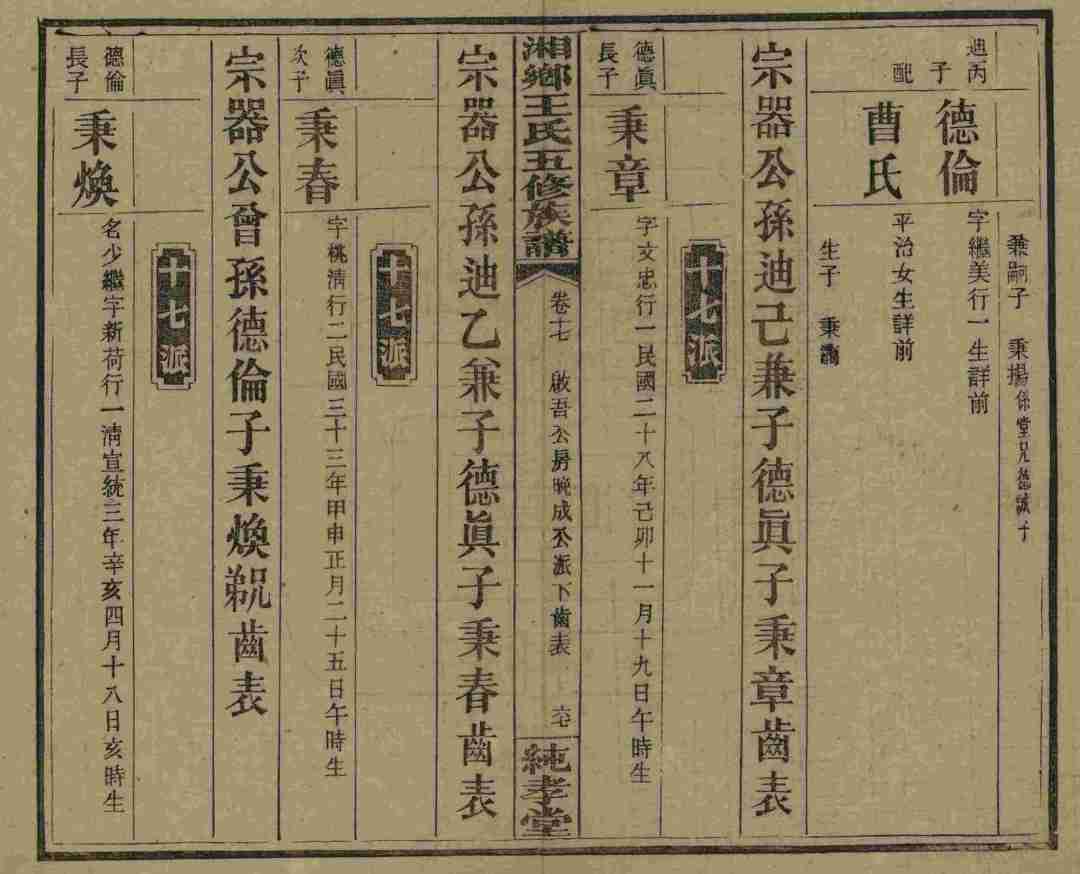 兼嗣子 秉揚係堂兄德誠子
迪丙子 德倫 字繼美行一生詳前
配 曹氏 平治女生詳前
生子 秉
宗器公孫迪己兼子德眞子秉章齒表
十七派
德眞長子 秉章 字文忠行一民國二十八年己卯十一月十九日午時生
湘鄉王氏五修族譜 卷十七 啟吾公房晚成公派下齒表 純孝堂
宗器公孫迪乙兼子德眞子秉春齒表
十七派
德眞次子 秉春 字桃淸行二民國三十三年甲申正月二十五日午時生
宗器公曾孫德倫子秉煥 齒表
十七派
德倫長子 秉煥 名少繼字新荷行一淸宣統三年辛亥四月十八日亥時生